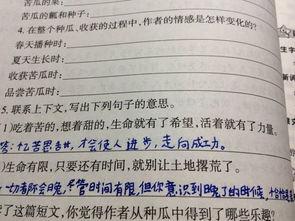 苦瓜的果:
苦瓜的瓤和种子:
4. 在整个种瓜、收获的过程中,作者的情感是怎样变化的?
春天播种时:
夏天生长时:
收获苦瓜时:
品尝苦瓜时:
5. 联系上下文,写出下列句子的意思。
1)吃着苦的,想着甜的,生命就有了希望,活着就有了力量。
答:吃苦思甜,才会使人进步,走向成功。
)生命有限,只要还有时间,就别让土地撂荒了。
一切都不会晚,尽管时间有限,但你意识到晚了的时候,恰恰是
了这篇短文,你觉得作者从种瓜中得到了哪些乐趣?